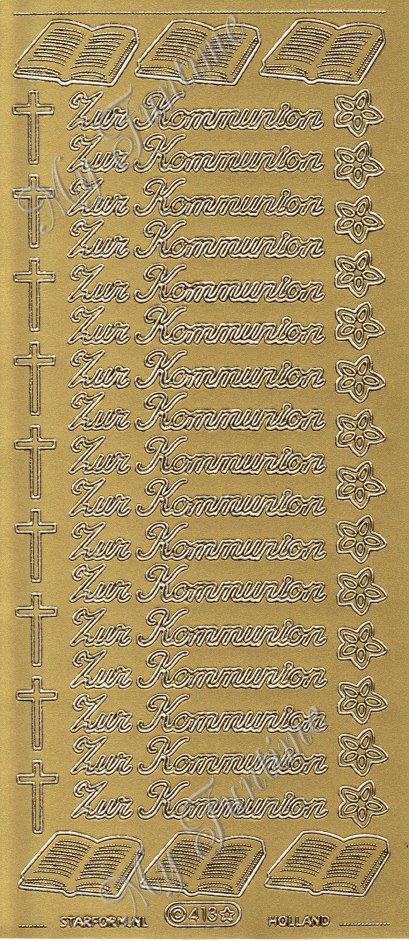 My Funtime
Zur Kommunion
Zur Kommunion
Zur Kommunion
Zur Kommunion
Zur Kommunion
Zur Kommunion
Zur Kommunion
Zur Kommunion
Zur Kommunion
Zur Kommunion
Zur Kommunion
Zur Kommunion
Zur Kommunion
Zur Kommunion
Zur Kommunion
Zur Kommunion
Zur Kommunion
My Funtime
STARFORM.NL ©413☆ HOLLAND